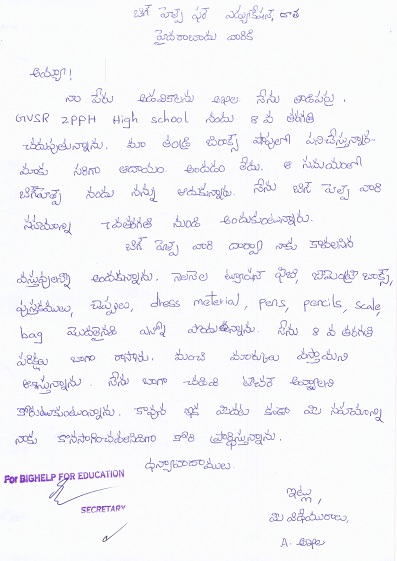 బిగ్ హెల్ప్ ఫర్ ఎడ్యుకేషన్, దాత
హైదరాబాదు వారికి
అయ్యా!
నా పేరు అఖిల నేను తాడిపర్రు.
GVSR ZPPH High school నందు 8 వ తరగతి
చదువుతున్నాను. మా తండ్రి జిరాక్స్ షాపులో పనిచేస్తున్నారు.
మాకు సరిగా ఆదాయం అందడం లేదు. ఆ సమయంలో
బిగ్‌హెల్ప్ నందు నన్ను ఆదుకున్నారు. నేను బిగ్ హెల్ప్ వారి
సహాయాన్ని 7వతరగతి నుండి అందుకుంటున్నాను.
బిగ్ హెల్ప్ వారి ద్వారా నాకు కావలసిన
వస్తువులన్నీ అందుకున్నాను. నెలనెల ట్యూషన్ ఫీజు, జామెంట్రీ బాక్స్,
పుస్తకములు, చెప్పులు, dress material, pens, pencils, scale,
bag మొదలైనవి ఎన్నో పొందుతున్నాను. నేను 8 వ తరగతి
పరీక్షలు బాగా రాసాను. మంచి మార్కులు వస్తాయని
ఆశిస్తున్నాను. నేను బాగా చదివి టీచర్ అవ్వాలని
కోరుకుంటున్నాను. కావున ఇక ముందు కూడా మీ సహాయాన్ని
నాకు కొనసాగించవలసిందిగా కోరి ప్రార్థిస్తున్నాను.
ధన్యవాదములు.
For BIGHELP FOR EDUCATION
SECRETARY
ఇట్లు,
మీ విధేయురాలు,
A. అఖిల